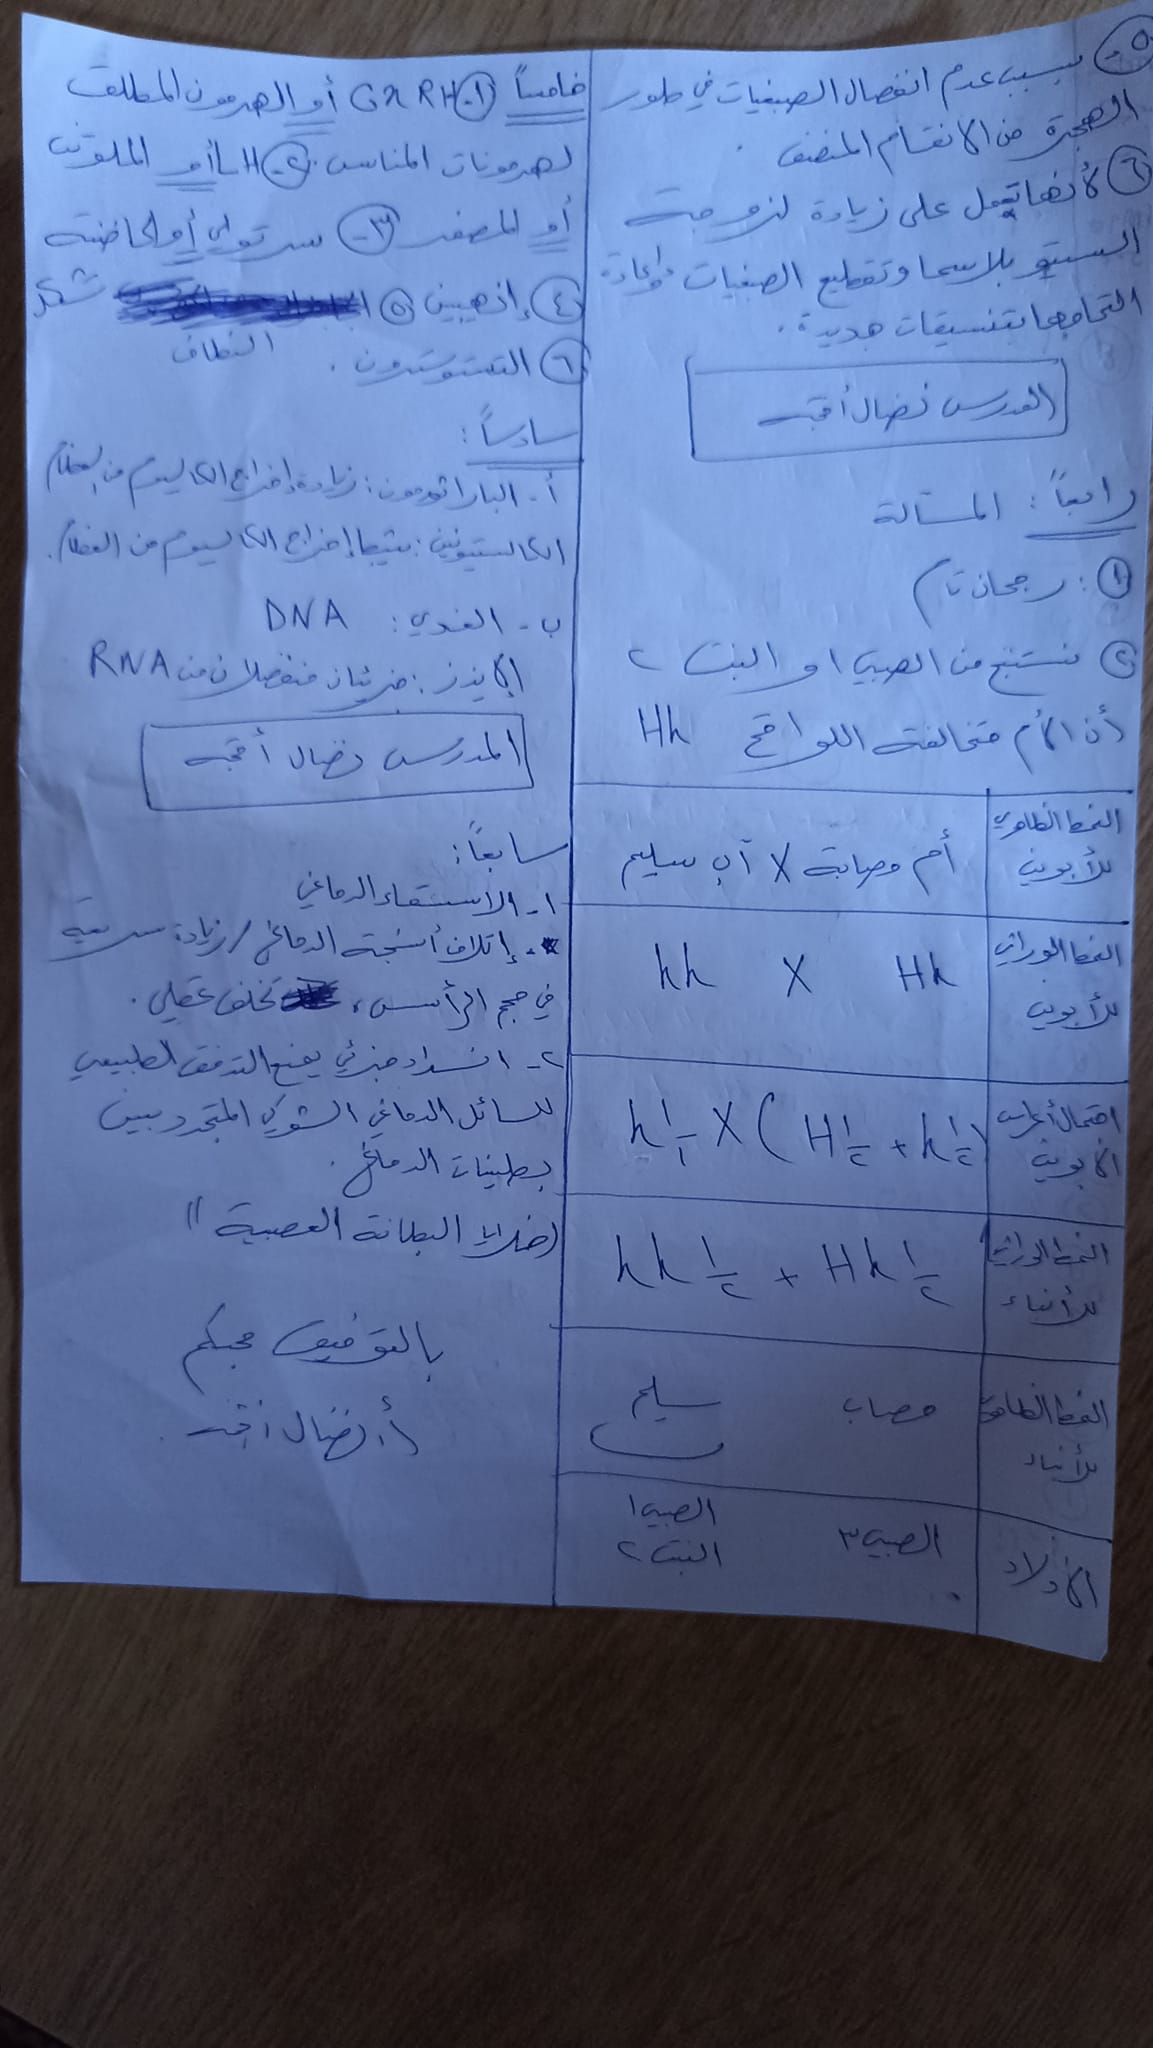 ٥- بسبب عدم انفصال الصبغيات في طور
الهجرة من الانقسام المنصف.
٦ لأنها تعمل على زيادة لزوجة
السيتوبلاسما وتقطيع الصبغيات وإعادة
التحامها بتنسيقات جديدة.
المدرس نضال أقجه
رابعاً: المسألة
١: رجحان تام
٢ نستنتج من الصبي ١ و البنت ٢
أن الأم متخالفة اللواقح Hh
النمط الظاهري للأبوين أم مصابة X أب سليم
النمط الوراثي للأبوين Hh X hh
احتمال أعراس الأبوين (h ١/٢ + H ١/٢) X h ١/١
النمط الوراثي للأبناء Hh ١/٢ + hh ١/٢
النمط الظاهري للأبناء مصاب سليم
الأولاد الصبي ٣ الصبي ١
البنت ٢
خامساً ١- GnRH أو الهرمون المطلق
لهرمونات المناسل. ٢- LH أو الملوتن
أو المصفر ٣- سرتولي أو الحاضنة
٤ إنهيبين ٥ تشكل
النطاف
٦ التستوسترون.
سادساً:
أ- الباراثورمون: زيادة إخراج الكالسيوم من العظام
الكالسيتونين: يثبط إخراج الكالسيوم من العظام.
ب- الغدي: DNA
الإيدز: جزيئان منفصلان من RNA
المدرس نضال أقجه
سابعاً:
١- الاستسقاء الدماغي
- إتلاف أنسجة الدماغ / زيادة سريعة
في حجم الرأس، تخلف عقلي.
٢- انسداد جزئي يمنع التدفق الطبيعي
للسائل الدماغي الشوكي المتجدد بين
بطينات الدماغ.
(خلايا البطانة العصبية "
بالتوفيق محبكم
أ. نضال أقجه.